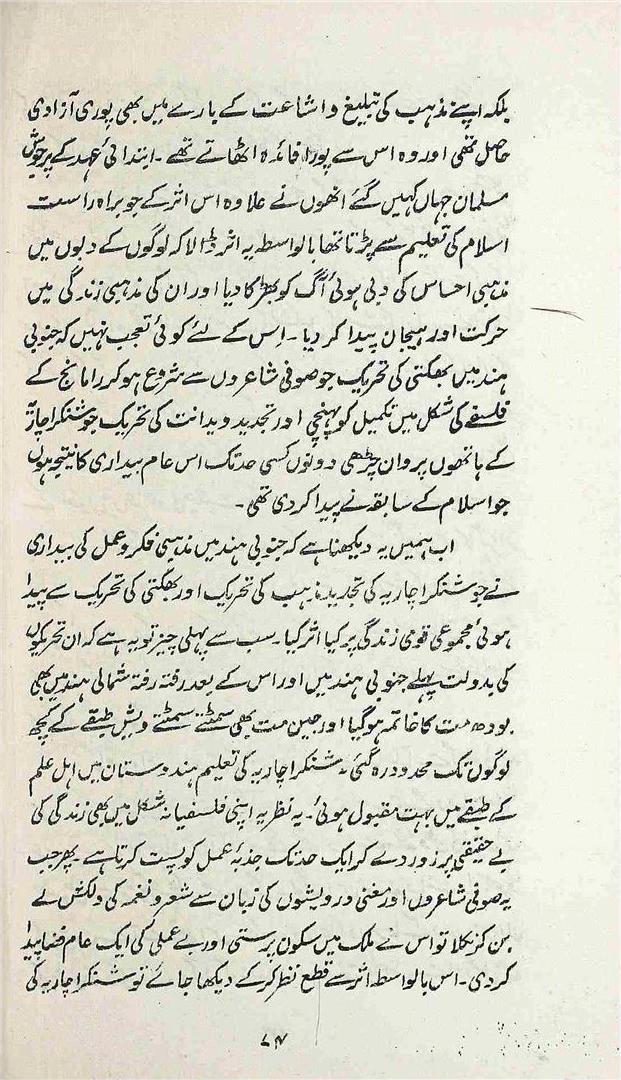 بلکہ اپنے مذہب کی تبلیغ و اشاعت کے بارے میں بھی پوری آزادی
حاصل تھی اور وہ اس سے پورا فائدہ اٹھاتے تھے ۔ ابتدائی عہد کے پرجوش
مسلمان جہاں کہیں گئے انھوں نے علاوہ اس اثر کے جو براہ راست
اسلام کی تعلیم سے پڑتا تھا بالواسطہ یہ اثر ڈالا کہ لوگوں کے دلوں میں
مذہبی احساس کی دبی ہوئی آگ کو بھڑکا دیا اور ان کی مذہبی زندگی میں
حرکت اور ہیجان پیدا کر دیا ۔ اس کے لئے کوئی تعجب نہیں کہ جنوبی
ہند میں بھگتی کی تحریک جو صوفی شاعروں سے شروع ہو کر رامانج کے
فلسفے کی شکل میں تکمیل کو پہنچی اور تجدید ویدانت کی تحریک جو شنکر اچاریہ
کے ہاتھوں پروان چڑھی دونوں کسی حد تک اس عام بیداری کا نتیجہ ہوں
جو اسلام کے سابقہ نے پیدا کر دی تھی ۔
اب ہمیں یہ دیکھنا ہے کہ جنوبی ہند میں مذہبی فکر و عمل کی بیداری
نے جو شنکر اچاریہ کی تجدید مذہب کی تحریک اور بھگتی کی تحریک سے پیدا
ہوئی مجموعی قومی زندگی پر کیا اثر کیا ۔ سب سے پہلی چیز تو یہ ہے کہ ان تحریکوں
کی بدولت پہلے جنوبی ہند میں اور اس کے بعد رفتہ رفتہ شمالی ہند میں بھی
بودھ مت کا خاتمہ ہو گیا اور جین مت بھی سمٹتے سمٹتے ویش طبقے کے کچھ
لوگوں تک محدود رہ گئی ۔ شنکر اچاریہ کی تعلیم ہندوستان میں اہل علم
کے طبقے میں بہت مقبول ہوئی ۔ یہ نظریہ اپنی فلسفیانہ شکل میں بھی زندگی کی
بے حقیقتی پر زور دے کر ایک حد تک جذبۂ عمل کو پست کرتا ہے ۔ پھر جب
یہ صوفی شاعروں اور مغنی درویشوں کی زبان سے شعر و نغمہ کی دلکش لے
بن کر نکلا تو اس نے ملک میں سکون پرستی اور بے عملی کی ایک عام فضا پیدا
کر دی ۔ اس بالواسطہ اثر سے قطع نظر کر کے دیکھا جائے تو شنکر اچاریہ کی